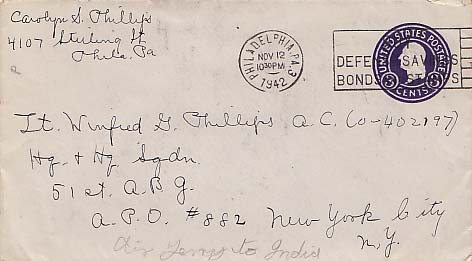 Carolyn S. Phillips
4107 Sterling St
Phila. Pa
PHILADELPHIA, PA. 3
NOV 12
1030 PM
1942
DEFENSE SAVINGS
BONDS STAMPS
UNITED STATES POSTAGE
3 CENTS 3
Lt. Winfred G. Phillips A.C. (O-402197)
Hq. & Hq Sqdn.
51st. A.B G.
A.P.O. #882 New York City
N.Y.
to India